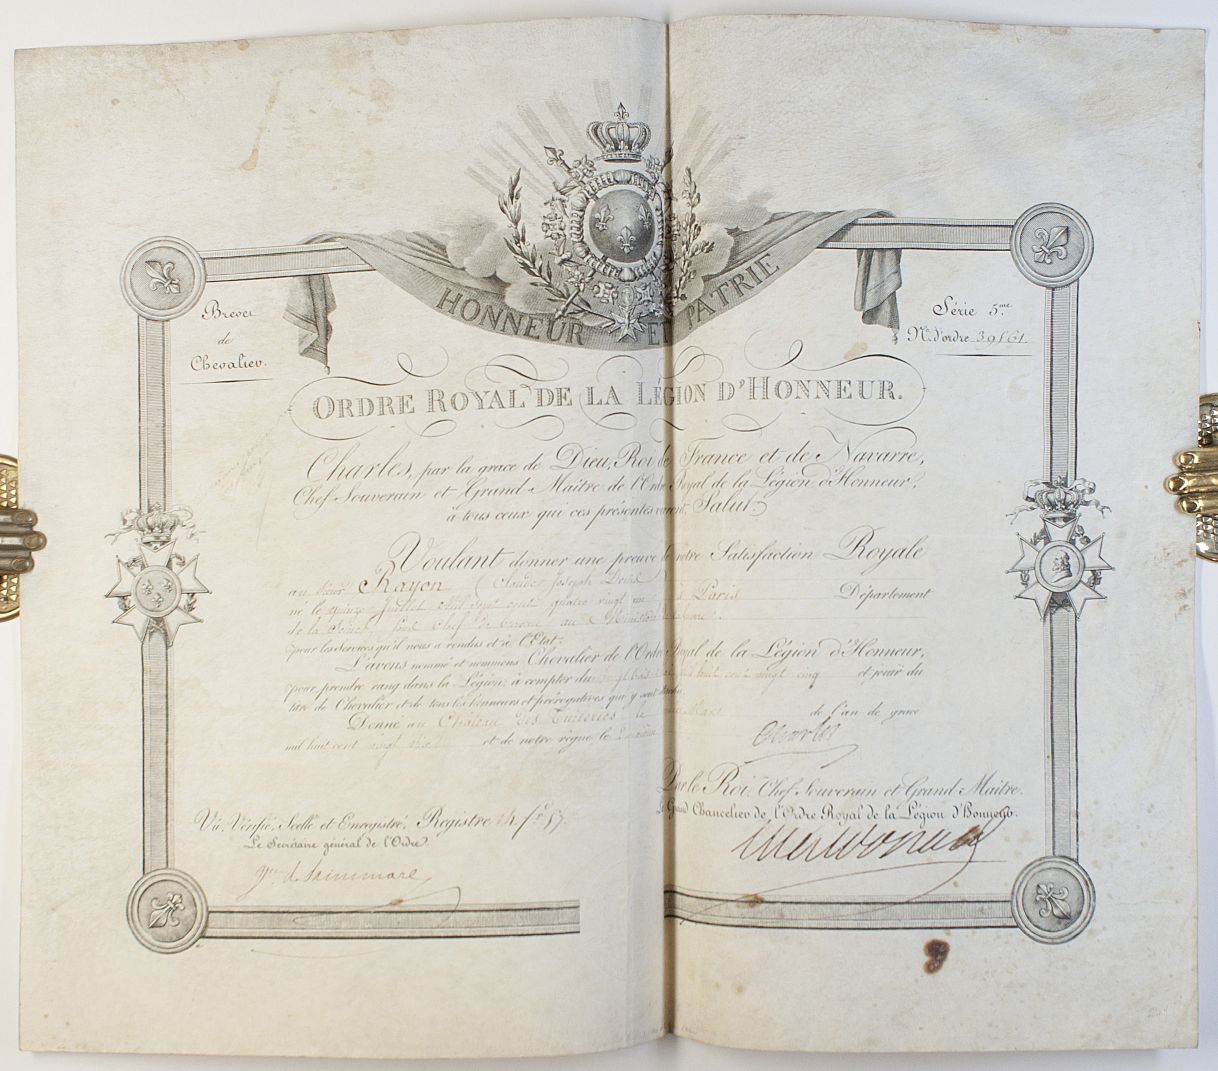 HONNEUR ET PATRIE
Brevet
de
Chevalier.
Série 5.me
N.o d'ordre 39561.
ORDRE ROYAL DE LA LÉGION D'HONNEUR.
Charles, par la grace de Dieu, Roi de France et de Navarre,
Chef Souverain et Grand-Maître de l'Ordre Royal de la Légion d'Honneur,
à tous ceux qui ces présentes verront, Salut.
Voulant donner une preuve de notre Satisfaction Royale
au Sieur Rayon (Claude Joseph Denis)
né le quinze juillet mil sept cent quatre vingt un à Paris Département
de la Seine, Sous Chef de Bureau au Ministère
pour les Services qu'il nous a rendus et à l'État;
L'avons nommé et nommons Chevalier de l'Ordre Royal de la Légion d'Honneur,
pour prendre rang dans la Légion, à compter du mil huit cent vingt cinq et jouir du
titre de Chevalier et de tous les honneurs et prérogatives qui y sont attachés.
Donné au Château des Tuileries le Mars de l'an de grace
mil huit cent vingt et de notre règne le
Charles
Par le Roi, Chef Souverain et Grand Maître.
Le Grand Chancelier de l'Ordre Royal de la Légion d'Honneur.
Vu, Vérifié, Scellé et Enregistré, Registre f.o 57.
Le Secrétaire général de l'Ordre.